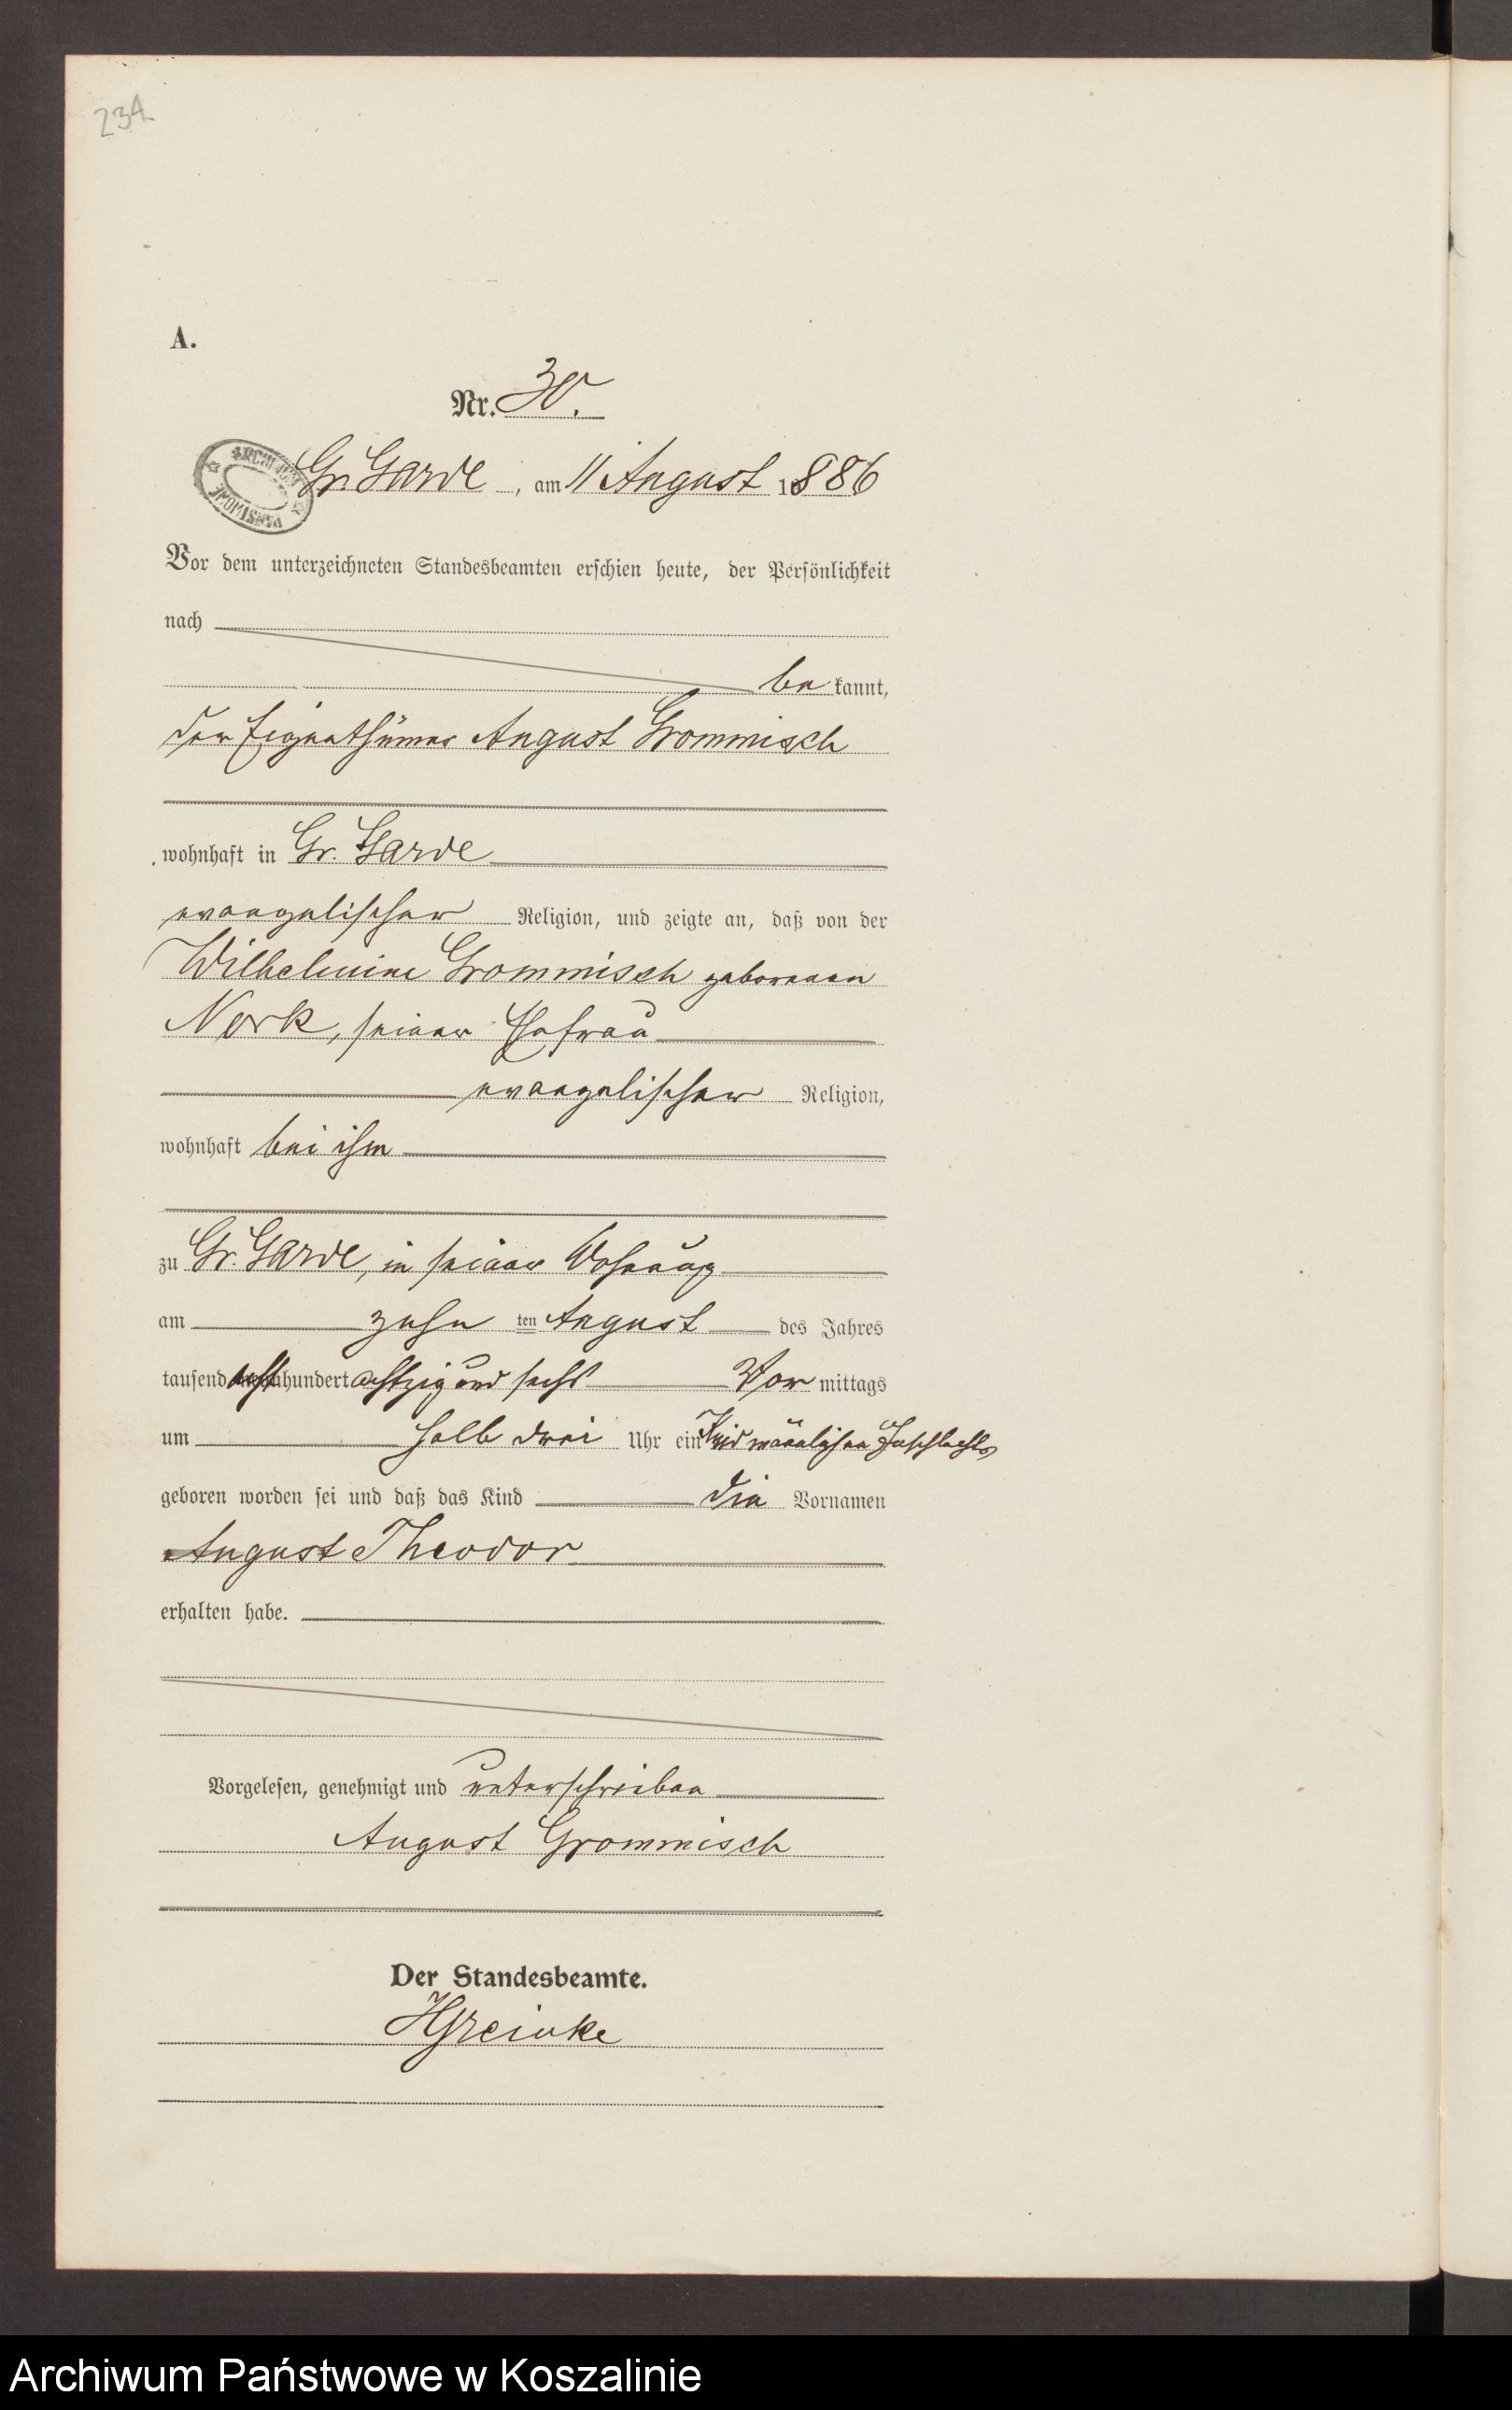 234
A.
Nr. 30.
ARCHIWUM PAŃSTWOWE
Gr. Garde, am 11 August 1886
Vor dem unterzeichneten Standesbeamten erschien heute, der Persönlichkeit
nach
be kannt,
der Eigenthümer August Grommisch
wohnhaft in Gr. Garde
evangelischer Religion, und zeigte an, daß von der
Wilhelmine Grommisch geborenen
Nork, seiner Ehefrau
evangelischer Religion,
wohnhaft bei ihm
zu Gr. Garde, in seiner Wohnung
am zehn ten August des Jahres
tausend acht hundert achtzig und sechs Vor mittags
um halb drei Uhr ein Kind männlichen Geschlechts
geboren worden sei und daß das Kind die Vornamen
August Theodor
erhalten habe.
Vorgelesen, genehmigt und unterschrieben
August Grommisch
Der Standesbeamte.
Archiwum Państwowe w Koszalinie